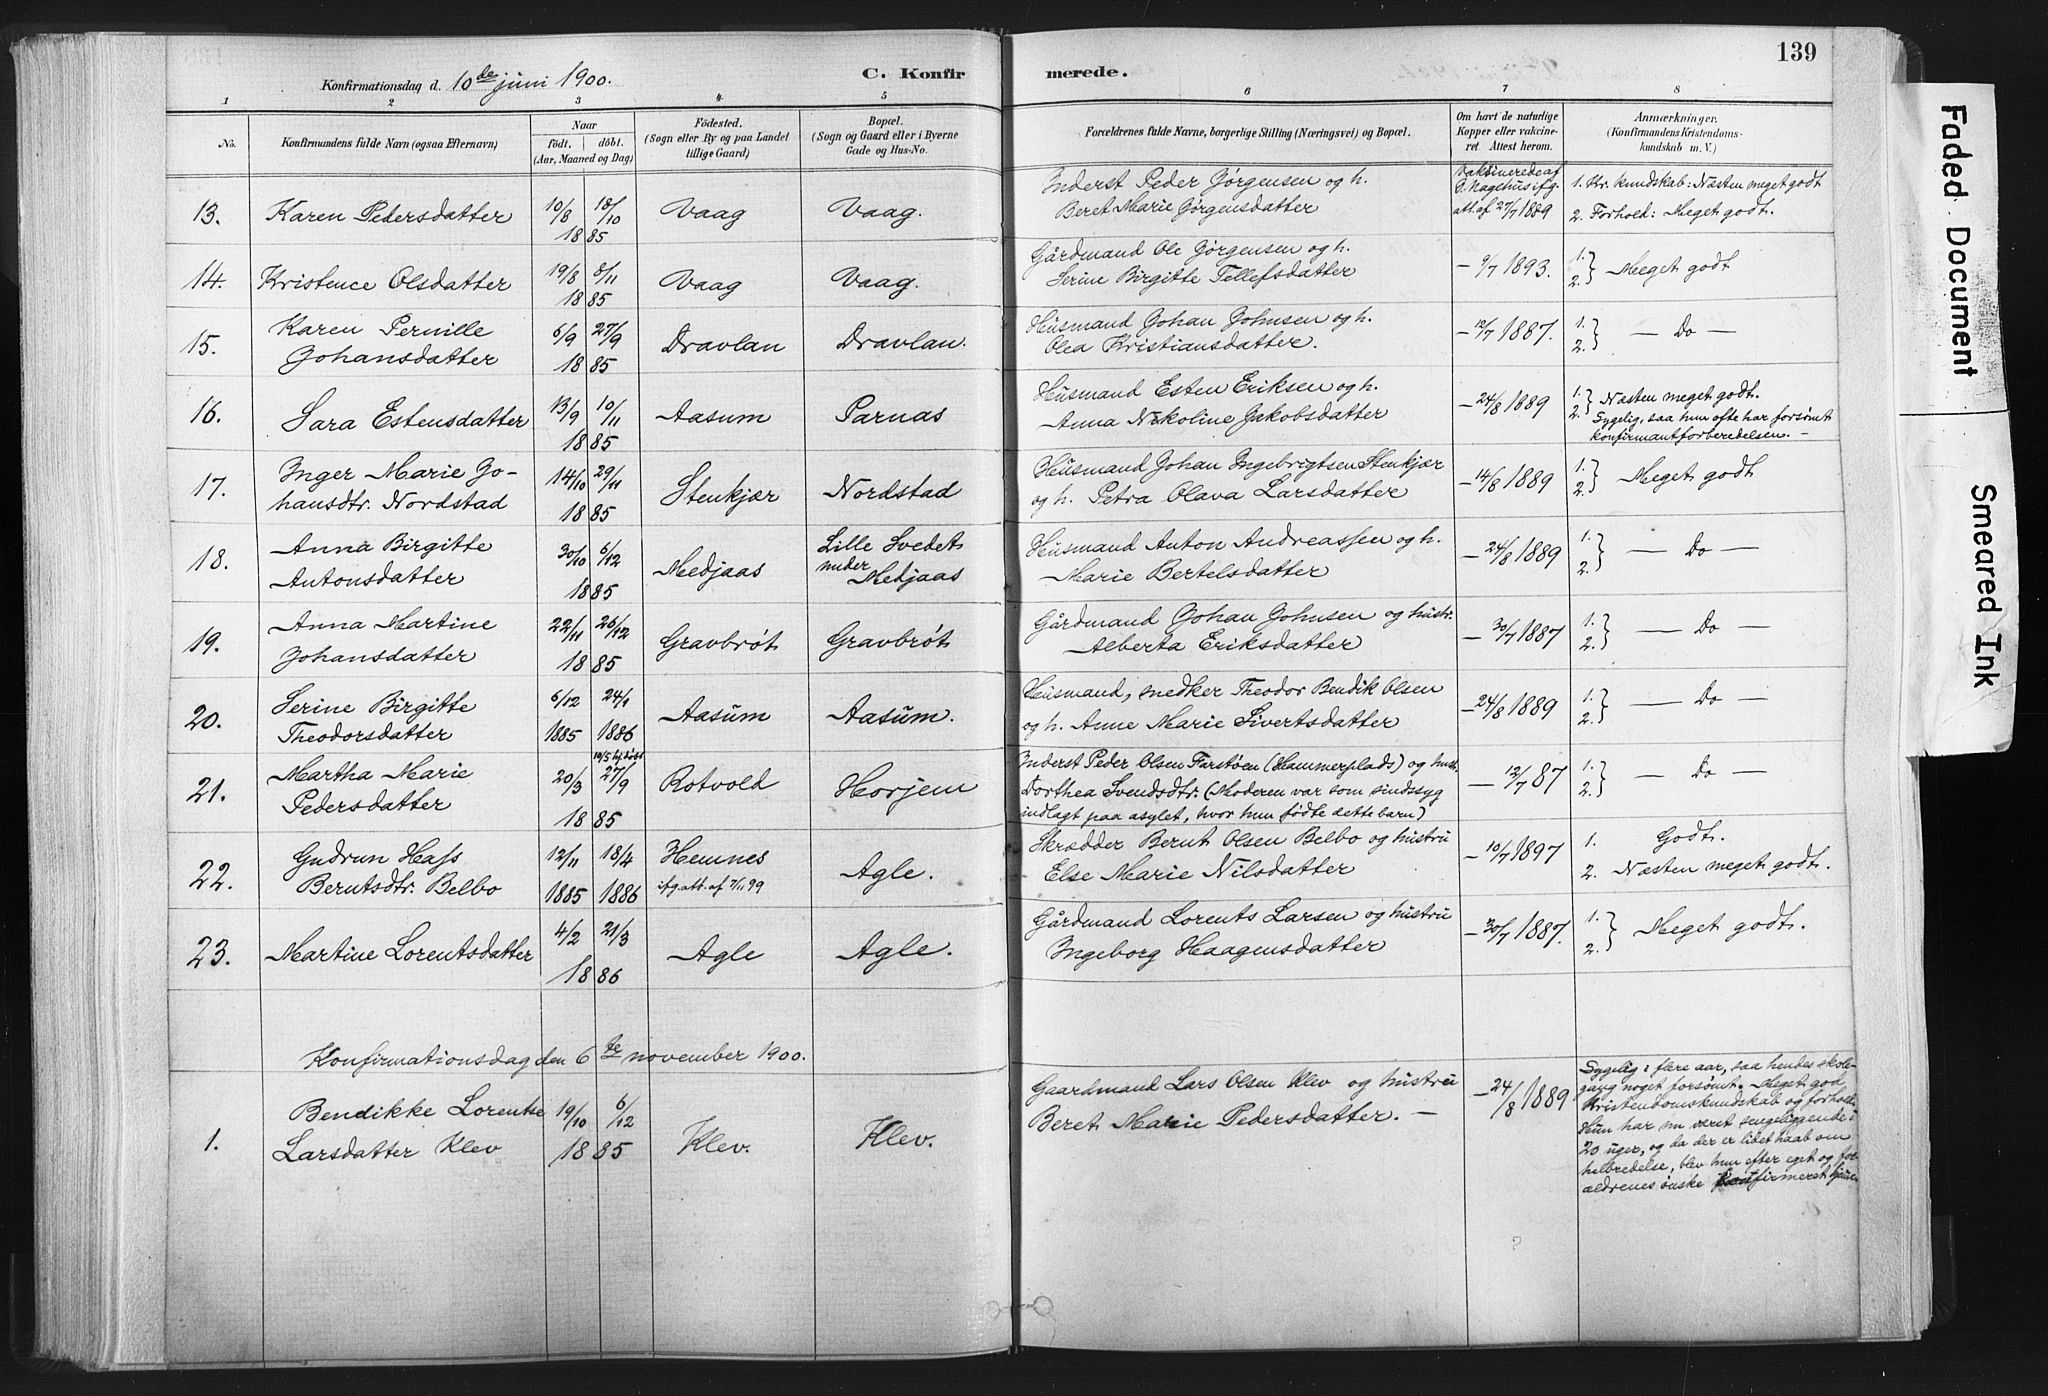 139
Konfirmationsdag d. 10de juni 1900.
C. Konfirmerede.
1 2 3 4 5 6 7 8
No.
Konfirmandens fulde Navn (ogsaa Efternavn)
Naar
födt. döbt.
(Aar, Maaned og Dag)
Födested.
(Sogn eller By og paa Landet
tillige Gaard)
Bopæl.
(Sogn og Gaard eller i Byerne
Gade og Hus-No.
Forældrenes fulde Navne, borgerlige Stilling (Næringsvei) og Bopæl.
Om havt de naturlige
Kopper eller vakcine-
ret Attest herom.
Anmærkninger.
(Konfirmandens Kristendoms-
kundskab m. V.)
13. Karen Pedersdatter 10/8 18/10 1885 Vaag Vaag.
Inderst Peder Jørgensen og h.
Beret Marie Jørgensdatter
Vaksinerede af
att. af 27/7 1889
1. Kr. kundskab: Næsten meget godt
2. Forhold: Meget godt.
14. Kristence Olsdatter 19/8 8/11 1885 Vaag Vaag.
Gårdmand Ole Jørgensen og h.
Serine Birgitte Tellefsdatter
– 9/7 1893.
1. 2. } Meget godt
15. Karen Pernille
Johansdatter
6/9 27/9 1885 Dravlan Dravlan.
Husmand Johan Johnsen og h.
Olea Kristiansdatter.
– 12/7 1887.
1. 2. } — Do —
16. Sara Estensdatter 13/9 10/11 1885 Aasum Parnas
Husmand Esten Eriksen og h.
Anna Nikoline Jakobsdatter
– 24/8 1889
1. 2. } Næsten meget godt.
Sygelig, saa hun ofte har forsømt
konfirmantforberedelsen. –
17. Inger Marie Jo-
hansdtr. Nordstad
14/10 29/11 1885 Stenkjær Nordstad
Husmand Johan Ingebrigtsen Stenkjær
og h. Petra Olava Larsdatter
– 14/8 1889
1. 2. } Meget godt
18. Anna Birgitte
Antonsdatter
30/10 6/12 1885 Medjaas
Lille Svedet
under
Medjaas
Husmand Anton Andreassen og h.
Marie Bertelsdatter
– 24/8 1889
1. 2. } — Do —
19. Anna Martine
Johansdatter
22/11 26/12 1885 Gravbrøt Gravbrøt
Gårdmand Johan Johnsen og hustr.
Alberta Eriksdatter
– 30/7 1887
1. 2. } — Do —
20. Serine Birgitte
Theodorsdatter
6/12 1885 24/1 1886 Aasum Aasum.
Husmand, snedker Theodor Bendik Olsen
og h. Anne Marie Sivertsdatter
– 24/8 1889
1. 2. } — Do —
21. Martha Marie
Pedersdatter
20/3 19/5 hj. døbt 27/9 1885 Rotvold Horjem
Inderst Peder Olsen Farstøen (Hammerplads) og hust.
Dorthea Svendsdtr. (Moderen var som sindssyg
indlagt paa asylet, hvor hun fødte dette barn)
– 12/7 87
1. 2. } — Do —
22. Gudrun Hass
Berntsdtr. Belbo
12/11 1885 18/4 1886 Hemnes
ifg. att. af 7/11 99
Agle.
Skrædder Bernt Olsen Belbo og hustru
Else Marie Nilsdatter
– 10/7 1897
1. Godt.
2. Næsten meget godt.
23. Martine Lorentsdatter 4/2 21/3 1886 Agle Agle.
Gårdmand Lorents Larsen og hustru
Ingeborg Haagensdatter
– 30/7 1887.
1. 2. } Meget godt.
Konfirmationsdag den 6te november 1900.
1. Bendikke Lorentse
Larsdatter Klev
19/10 6/12 1885 Klev. Klev.
Gaardmand Lars Olsen Klev og hustru
Beret Marie Pedersdatter. –
– 24/8 1889
Sygelig i flere aar, saa hendes skole-
gang noget forsømt. Meget god
Kristendomskundskab og forhold.
Hun har nu været sengeliggende i
20 uger, og da der er lidet haab om
helbredelse, blev hun efter eget og for-
ældrenes ønske konfirmeret hjem
Faded Document
Smeared Ink